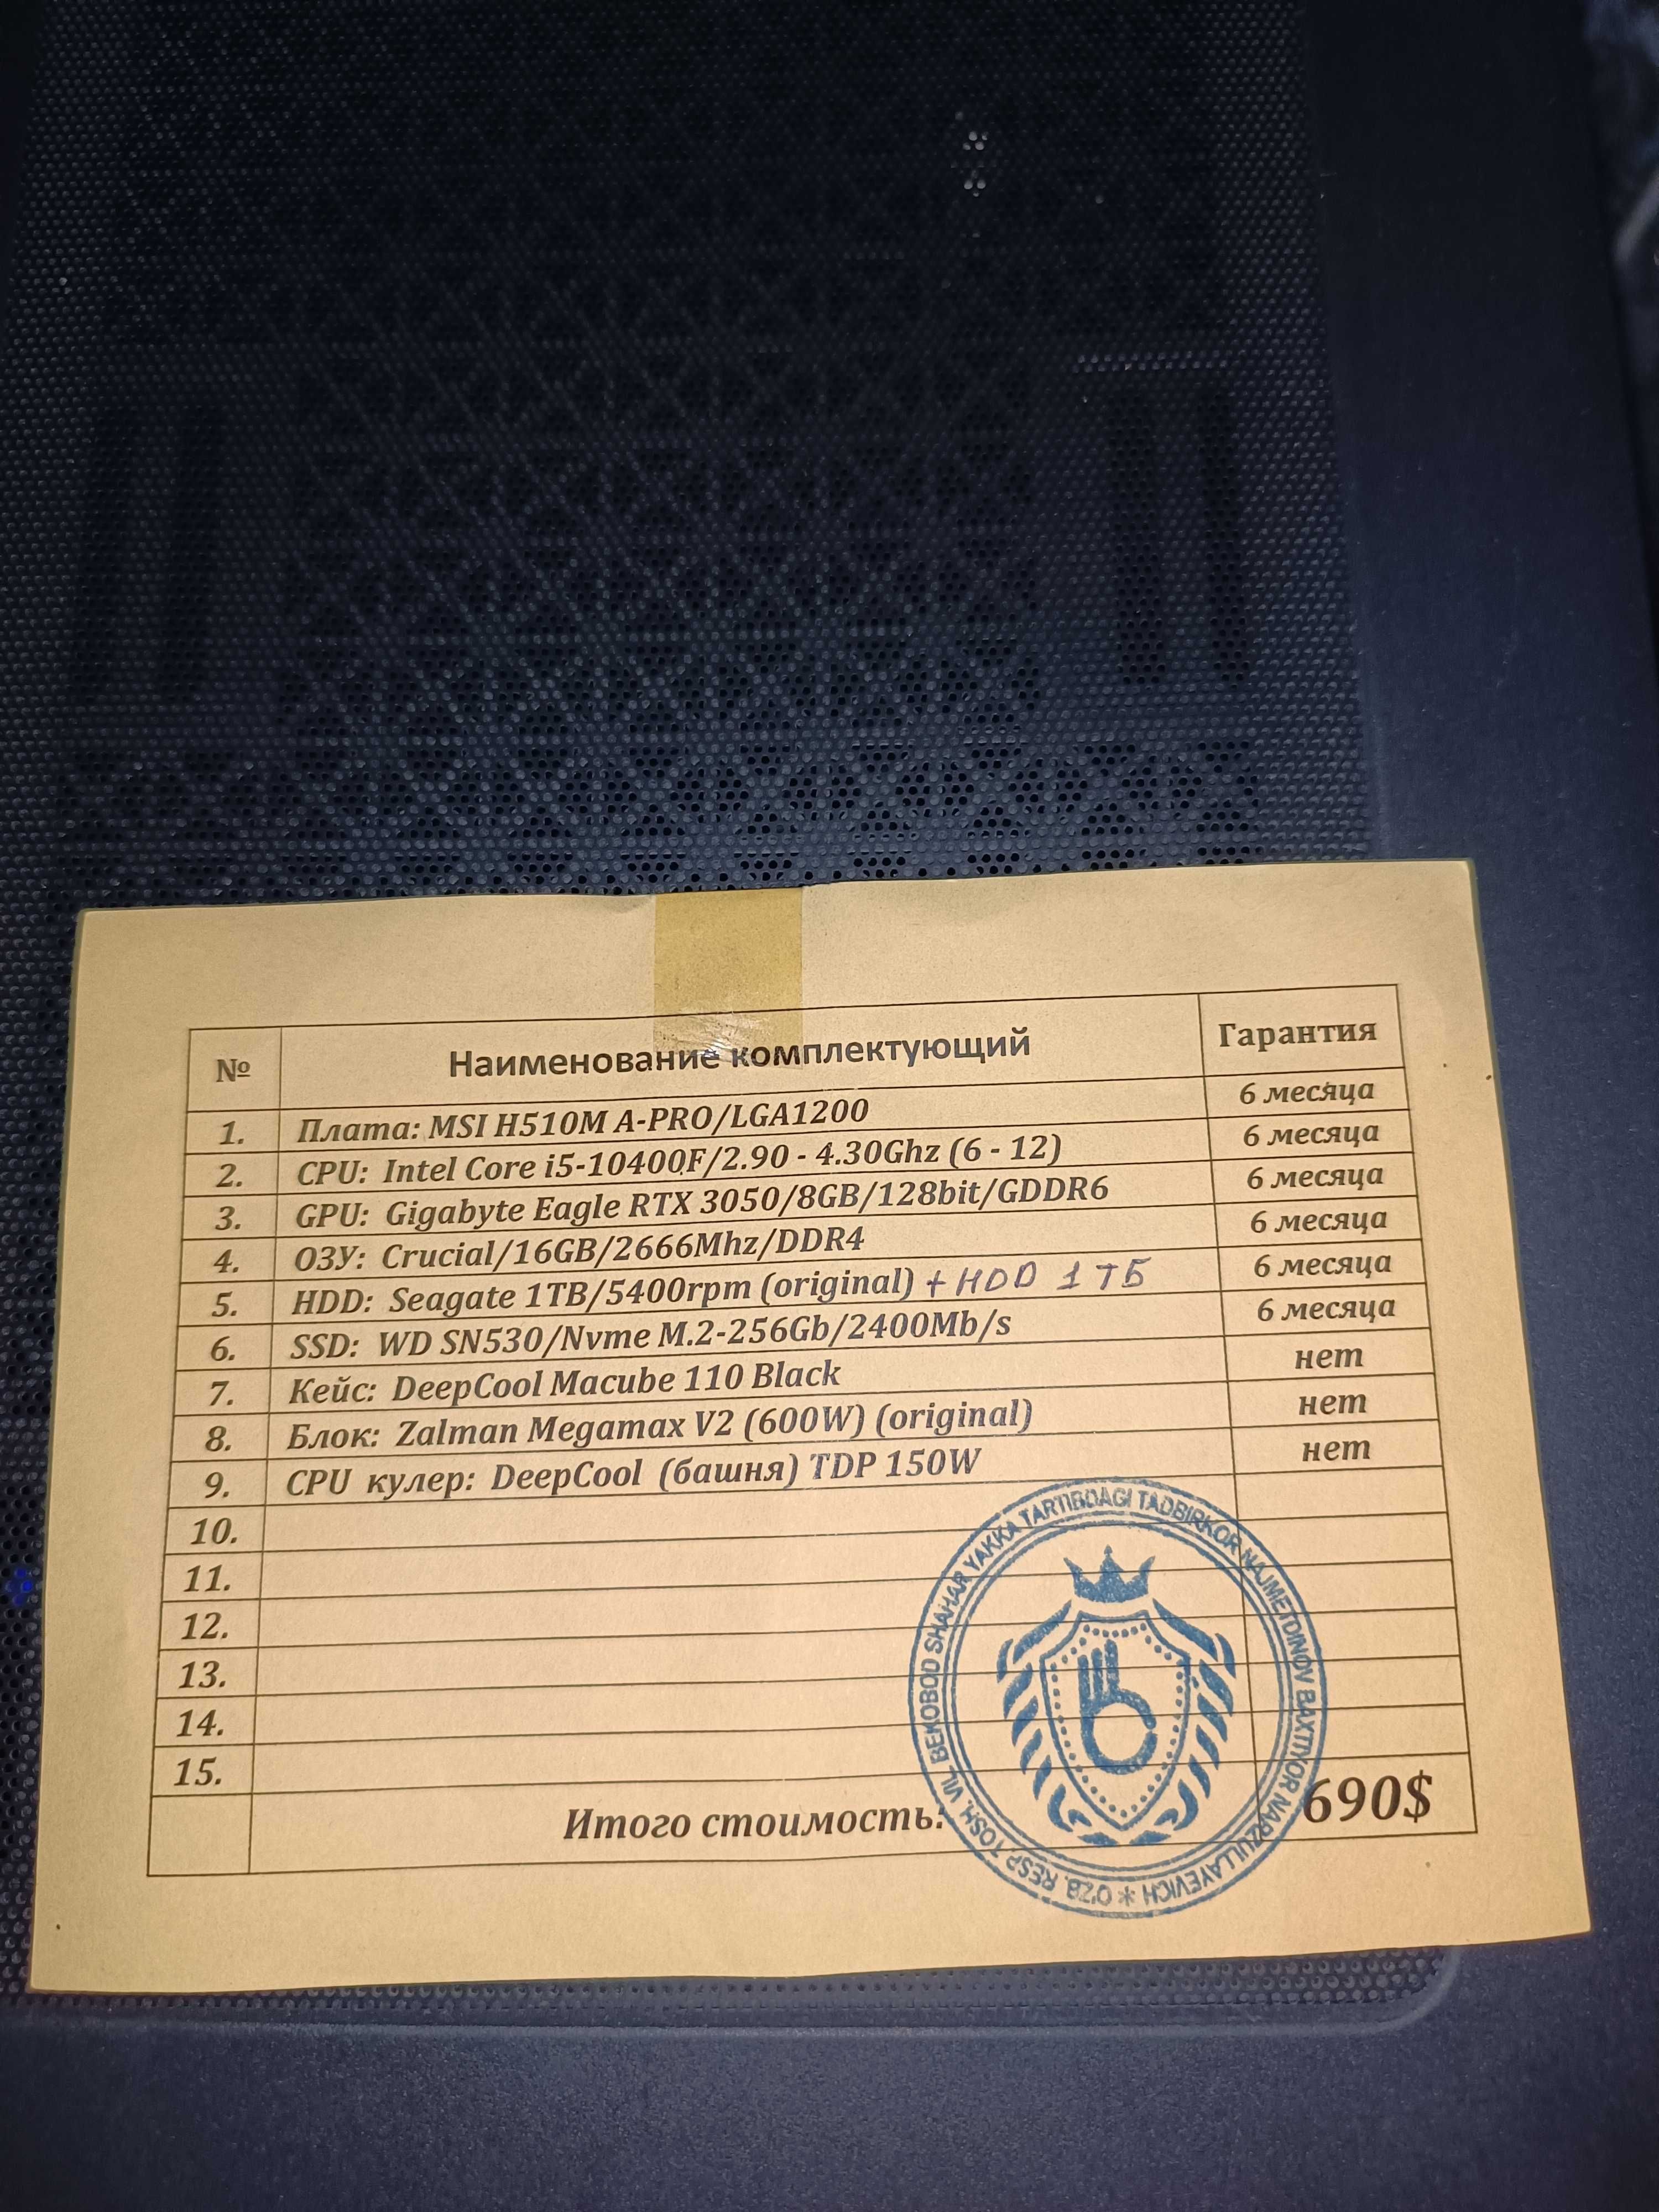 № Наименование комплектующий Гарантия
1. Плата: MSI H510M A-PRO/LGA1200 6 месяца
2. CPU: Intel Core i5-10400F/2.90 - 4.30Ghz (6 - 12) 6 месяца
3. GPU: Gigabyte Eagle RTX 3050/8GB/128bit/GDDR6 6 месяца
4. ОЗУ: Crucial/16GB/2666Mhz/DDR4 6 месяца
5. HDD: Seagate 1TB/5400rpm (original) + HDD 1 ТБ 6 месяца
6. SSD: WD SN530/Nvme M.2-256Gb/2400Mb/s 6 месяца
7. Кейс: DeepCool Macube 110 Black нет
8. Блок: Zalman Megamax V2 (600W) (original) нет
9. CPU кулер: DeepCool (башня) TDP 150W нет
10.
11.
12.
13.
14.
15.
Итого стоимость: 690$
O'ZB. RESP. TOSH. VIL. BEKOBOD SHAHAR YAKKA TARTIBDAGI TADBIRKOR NAJMETDINOV BAXTIYOR NARZULLAYEVICH *